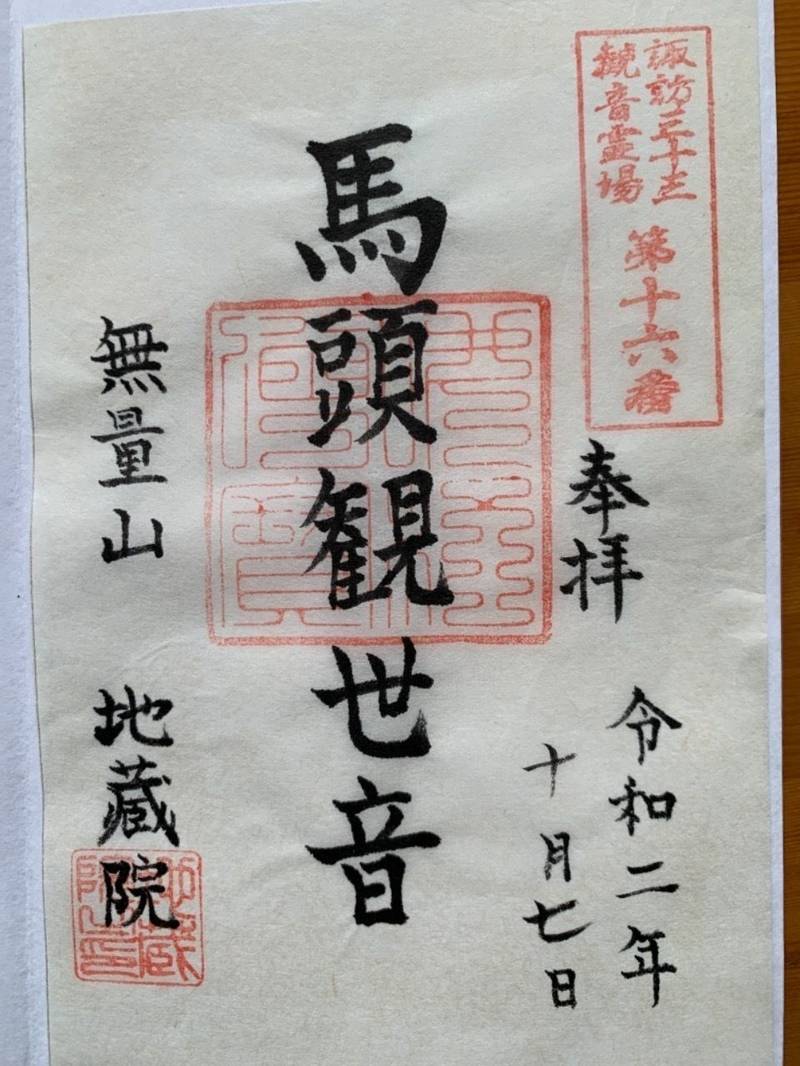 諏訪三十三
観音霊場
第十六番
奉拝
令和二年
十月七日
馬頭観世音
無量山
地蔵院